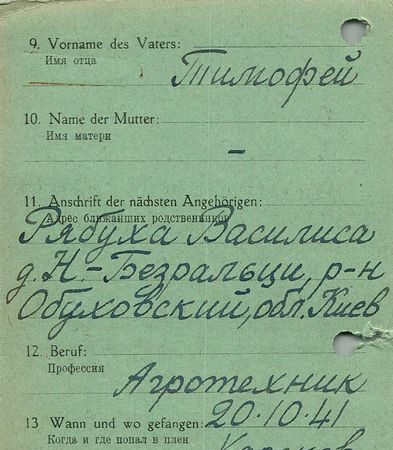 9. Vorname des Vaters:
Имя отца
Тимофей
10. Name der Mutter:
Имя матери
–
11. Anschrift der nächsten Angehörigen:
Адрес ближайших родственников
Рябуха Василиса
д. Н.-Безральци, р-н
Обуховский, обл. Киев
12. Beruf:
Профессия
Агротехник
13 Wann und wo gefangen: 20.10.41
Когда и где попал в плен